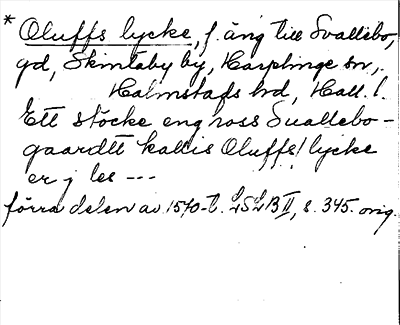 * Oluffs lycke, f. äng till Svallebo,
gd, Skintaby by, Harplinge sn,
Halmstads hd, Hall. l.
Ett støcke eng noss Suallebo-
gaardtt kallis Oluffs lycke
er j les ---
förra delen av 1570-t. LSLB II, s. 345. orig.